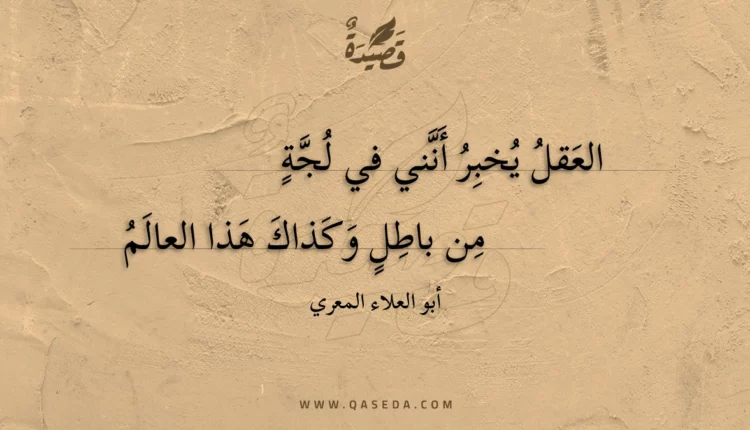 قَصِيدَةٌ
العَقلُ يُخبِرُ أَنَّني في لُجَّةٍ
مِن باطِلٍ وَكَذاكَ هَذا العالَمُ
أبو العلاء المعري
WWW.QASEDA.COM